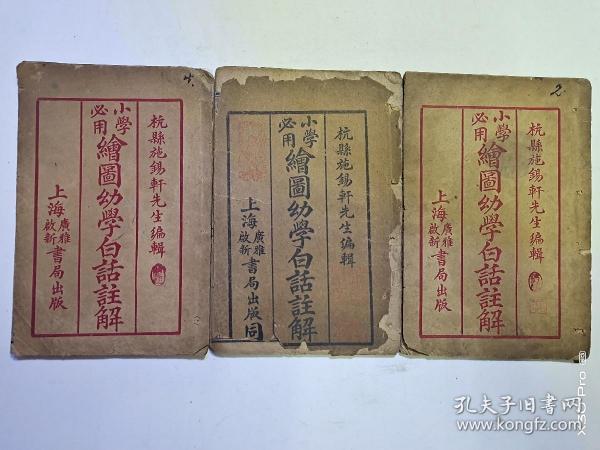 4.
杭縣施錫軒先生編輯
小學必用
繪圖幼學白話註解
上海廣雅啟新書局出版
杭縣施錫軒先生編輯
小學必用
繪圖幼學白話註解
上海廣雅啟新書局出版
同
2
杭縣施錫軒先生編輯
小學必用
繪圖幼學白話註解
上海廣雅啟新書局出版
孔夫子旧书网
www.kongfz.com